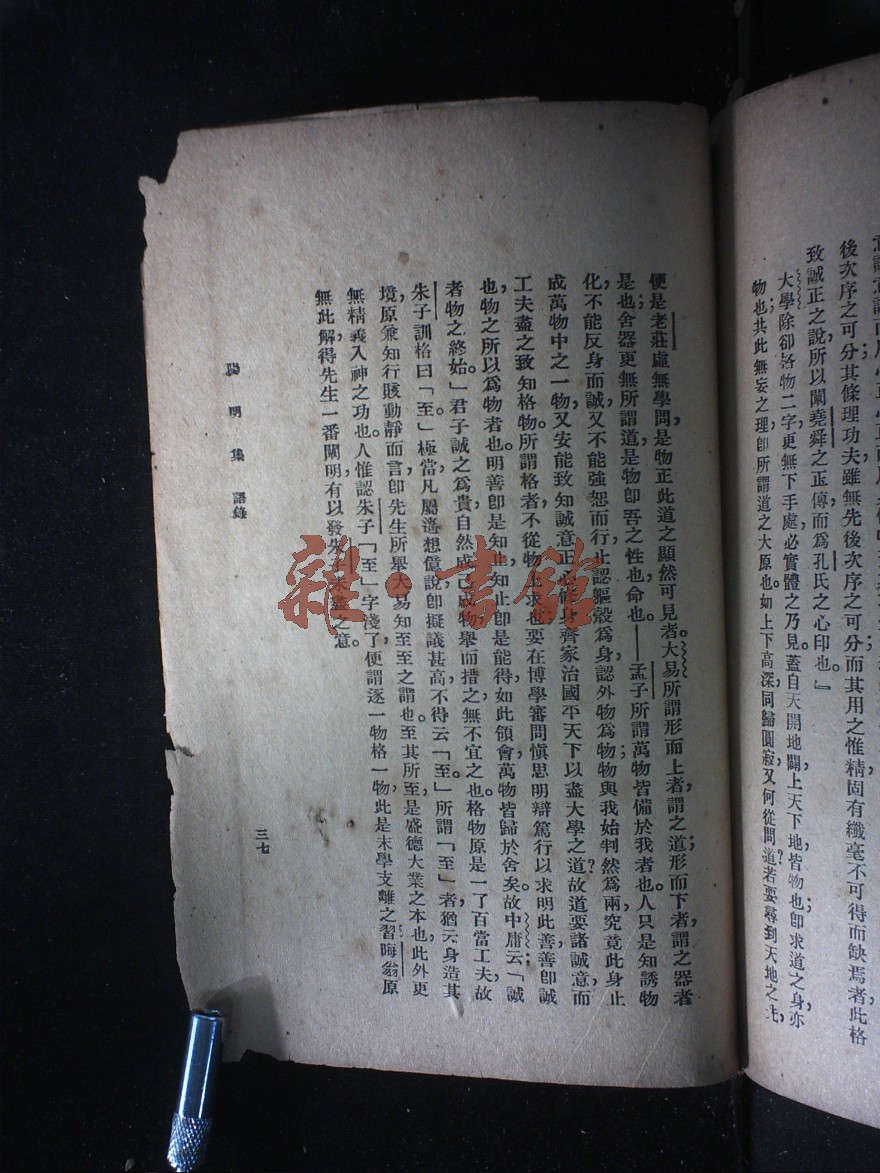 後次序之可分其條理功夫雖無先後次序之可分而其用之惟精固有纖毫不可得而缺焉者此格
致誠正之說所以闡堯舜之正傳而爲孔氏之心印也』
大學除卻格物二字更無下手處必實體之乃見蓋自天開地闢上天下地皆物也卽求道之身亦
物也共此無妄之理卽所謂道之大原也如上下高深同歸圓寂又何從問道若要尋到天地之先,
便是老莊虛無學問,是物正此道之顯然可見者。大易所謂形而上者謂之道,形而下者謂之器者
是也;舍器更無所謂道是物卽吾之性也命也。——孟子所謂萬物皆備於我者也。人只是知誘物
化,不能反身而誠,又不能強恕而行,止認軀殼爲身,認外物爲物;物與我始判然爲兩,究竟此身止
成萬物中之一物,又安能致知誠意正心修身齊家治國平天下以盡大學之道?故道要諸誠意而
工夫盡之致知格物,所謂格者不從物上求也,要在博學審問愼思明辯篤行以求明此善,善卽誠
也,物之所以爲物者也。明善卽是知止,知止卽是能得,如此領會萬物皆歸於舍矣。故中庸云:「誠
者物之終始。」君子誠之爲貴,自然成己成物,舉而措之無不宜之也。格物原是一了百當工夫,故
朱子訓格曰「至」極當。凡屬遙想億說,卽擬議甚高,不得云「至。」所謂「至」者,猶云身造其
境,原兼知行賅動靜而言,卽先生所舉大易知至至之謂也。至其所至,是盛德大業之本也,此外更
無精義入神之功也。人惟認朱子「至」字淺了,便謂逐一物格一物,此是末學支離之習,晦翁原
無此解,得先生一番闡明,有以發朱子未盡之意。
陽明集 語錄
三七
雜·書館